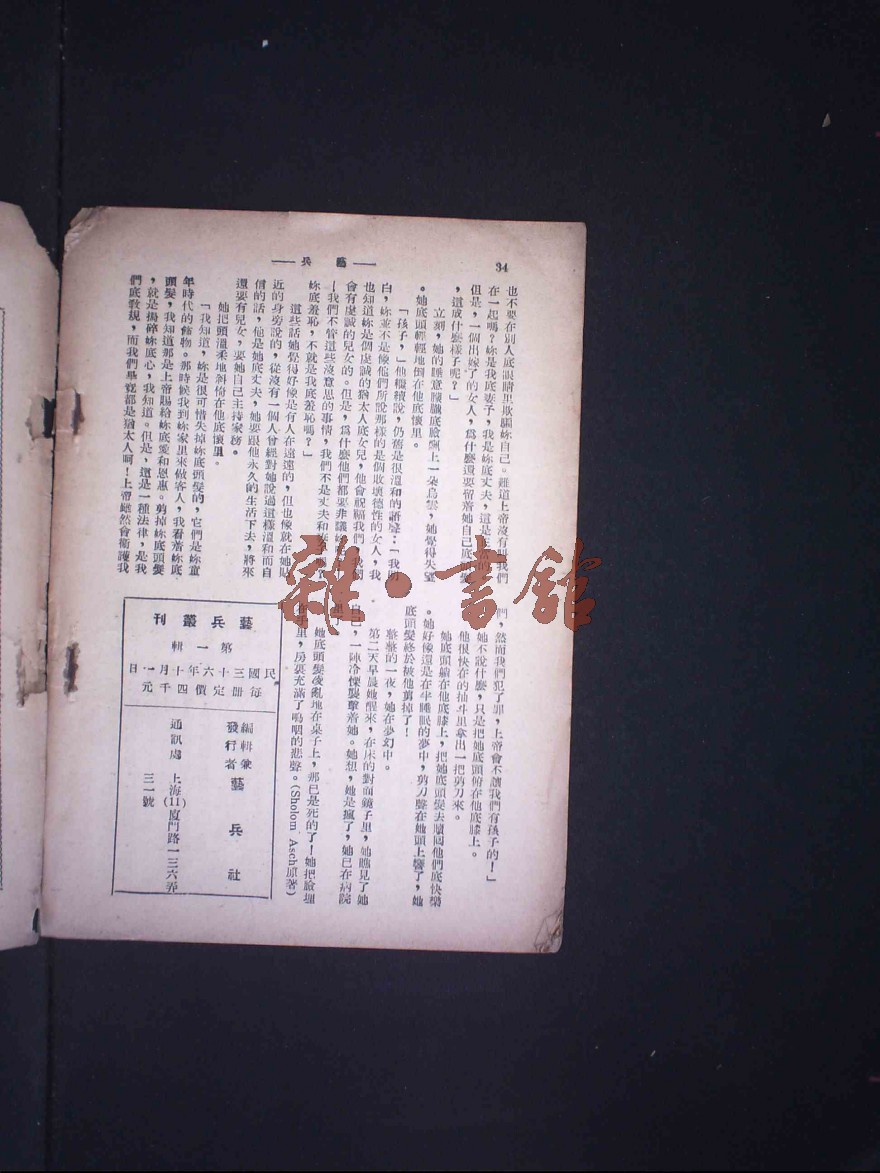 34
—藝兵—
也不要在別人底眼睛里欺騙妳自己。難道上帝沒有叫我們
在一起嗎?妳是我底妻子,我是妳底丈夫,這是
但是,一個出嫁了的女人,爲什麼還要留着她自己底頭髮
,這成什麼樣子呢?」
立刻,她的睡意朦朧底臉龐上一朵烏雲,她覺得失望
。她底頭輕輕地倒在他底懷里。
「孩子,」他繼續說,仍舊是很溫和的語聲:「我明
白,妳並不是像他們所說那樣的是個敗壞德性的女人,我
也知道妳是個虔誠的猶太人底女兒,他會祝福我們,我們
會有虔誠的兒女的。但是,爲什麼他們都要非議
!我們不管這些沒意思的事情,我們不是丈夫和妻子嗎?
妳底羞恥,不就是我底羞恥嗎?」
這些話她覺得好像是有人在遠遠的,但也像就在她貼
近的身旁說的,從沒有一個人曾經對她說過這樣溫和而自
信的話,他是她底丈夫,她要跟他永久的生活下去,將來
還要有兒女,要她自己主持家務。
她把頭溫柔地斜倚在他底懷里。
「我知道,妳是很可惜失掉妳底頭髮的,它們是妳童
年時代的飾物。那時候我到妳家里來做客人,我看着妳底
頭髮,我知道那是上帝賜給妳底愛和恩惠。剪掉妳底頭髮
,就是搗碎妳底心,我知道。但是,這是一種法律,是我
們底教規,而我們畢竟都是猶太人呵!上帝雖然會衛護我
們,然而我們犯了罪,上帝會不讓我們有孩子的!」
她不說什麼,只是把她底頭俯在他底膝上。
他很快在的抽斗里拿出一把剪刀來。
她底頭躺在他底膝上,把她底頭髮去贖回他們底快樂
。她好像還是在半睡眠的夢中,剪刀聲在她頭上響了,她
底頭髮終於被他剪掉了!
整整的一夜,她在夢幻中。
第二天早晨她醒來,在床的對面鏡子里,她瞧見了她
自己,一陣冷慄襲擊着她。她想,她是瘋了,她已在病院
里了
她底頭髮凌亂地在桌子上,那已是死的了!她把臉埋
在手里,房裏充滿了嗚咽的悲聲。(Sholom Asch原著)
藝兵叢刊
第一輯
民國三十六年十月一日
每冊定價四千元
編輯兼
發行者
藝兵社
通訊處 上海(11)廈門路一三六弄
三一號
雜·書館